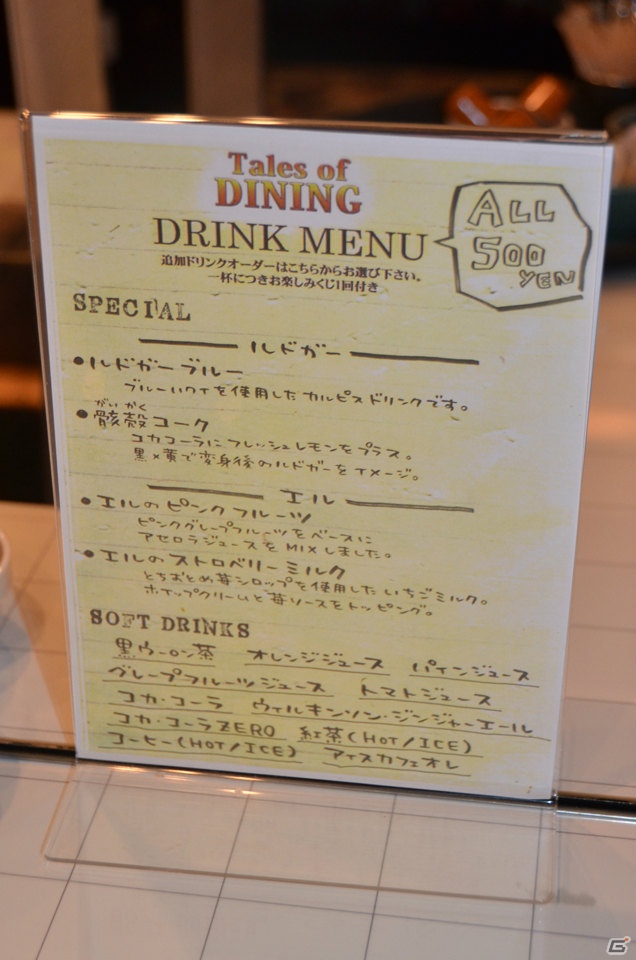 Tales of
DINING
DRINK MENU
ALL
500
YEN
追加ドリンクオーダーはこちらからお選び下さい。
一杯につきお楽しみくじ1回付き
SPECIAL
ルドガー
●ルドガーブルー
ブルーハワイを使用したカルピスドリンクです。
がいかく
●骸殻コーク
コカコーラにフレッシュレモンをプラス。
黒×黄で変身後のルドガーをイメージ。
エル
●エルのピンクフルーツ
ピンクグレープフルーツをベースに
アセロラジュースをMIXしました。
●エルのストロベリーミルク
とちおとめ苺シロップを使用したいちごミルク。
ホイップクリームと苺ソースをトッピング。
SOFT DRINKS
黒ウーロン茶 オレンジジュース パインジュース
グレープフルーツジュース トマトジュース
コカ・コーラ ウィルキンソン・ジンジャーエール
コカ・コーラZERO 紅茶(HOT/ICE)
コーヒー(HOT/ICE) アイスカフェオレ